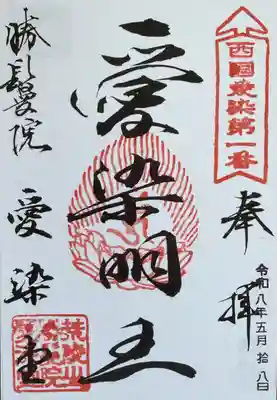 西國愛染第一番
奉拝
令和八年五月拾八日
愛染明王
勝鬘院
愛染堂